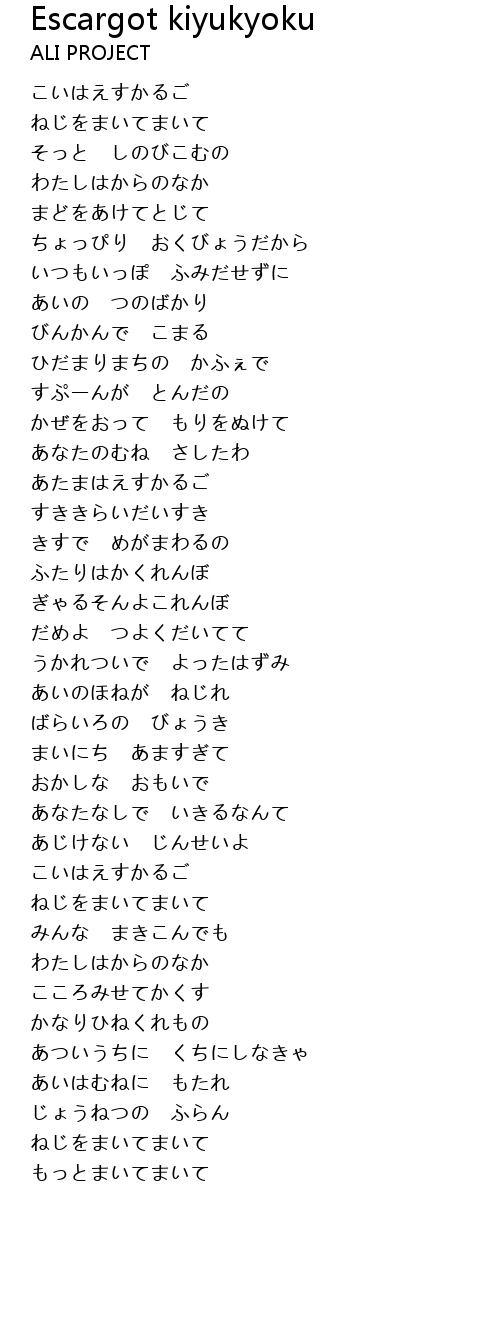 Escargot kiyukyoku
ALI PROJECT
こいはえすかるご
ねじをまいてまいて
そっと　しのびこむの
わたしはからのなか
まどをあけてとじて
ちょっぴり　おくびょうだから
いつもいっぽ　ふみだせずに
あいの　つのばかり
びんかんで　こまる
ひだまりまちの　かふぇで
すぷーんが　とんだの
かぜをおって　もりをぬけて
あなたのむね　さしたわ
あたまはえすかるご
すききらいだいすき
きすで　めがまわるの
ふたりはかくれんぼ
ぎゃるそんよこれんぼ
だめよ　つよくだいてて
うかれついで　よったはずみ
あいのほねが　ねじれ
ばらいろの　びょうき
まいにち　あますぎて
おかしな　おもいで
あなたなしで　いきるなんて
あじけない　じんせいよ
こいはえすかるご
ねじをまいてまいて
みんな　まきこんでも
わたしはからのなか
こころみせてかくす
かなりひねくれもの
あついうちに　くちにしなきゃ
あいはむねに　もたれ
じょうねつの　ふらん
ねじをまいてまいて
もっとまいてまいて